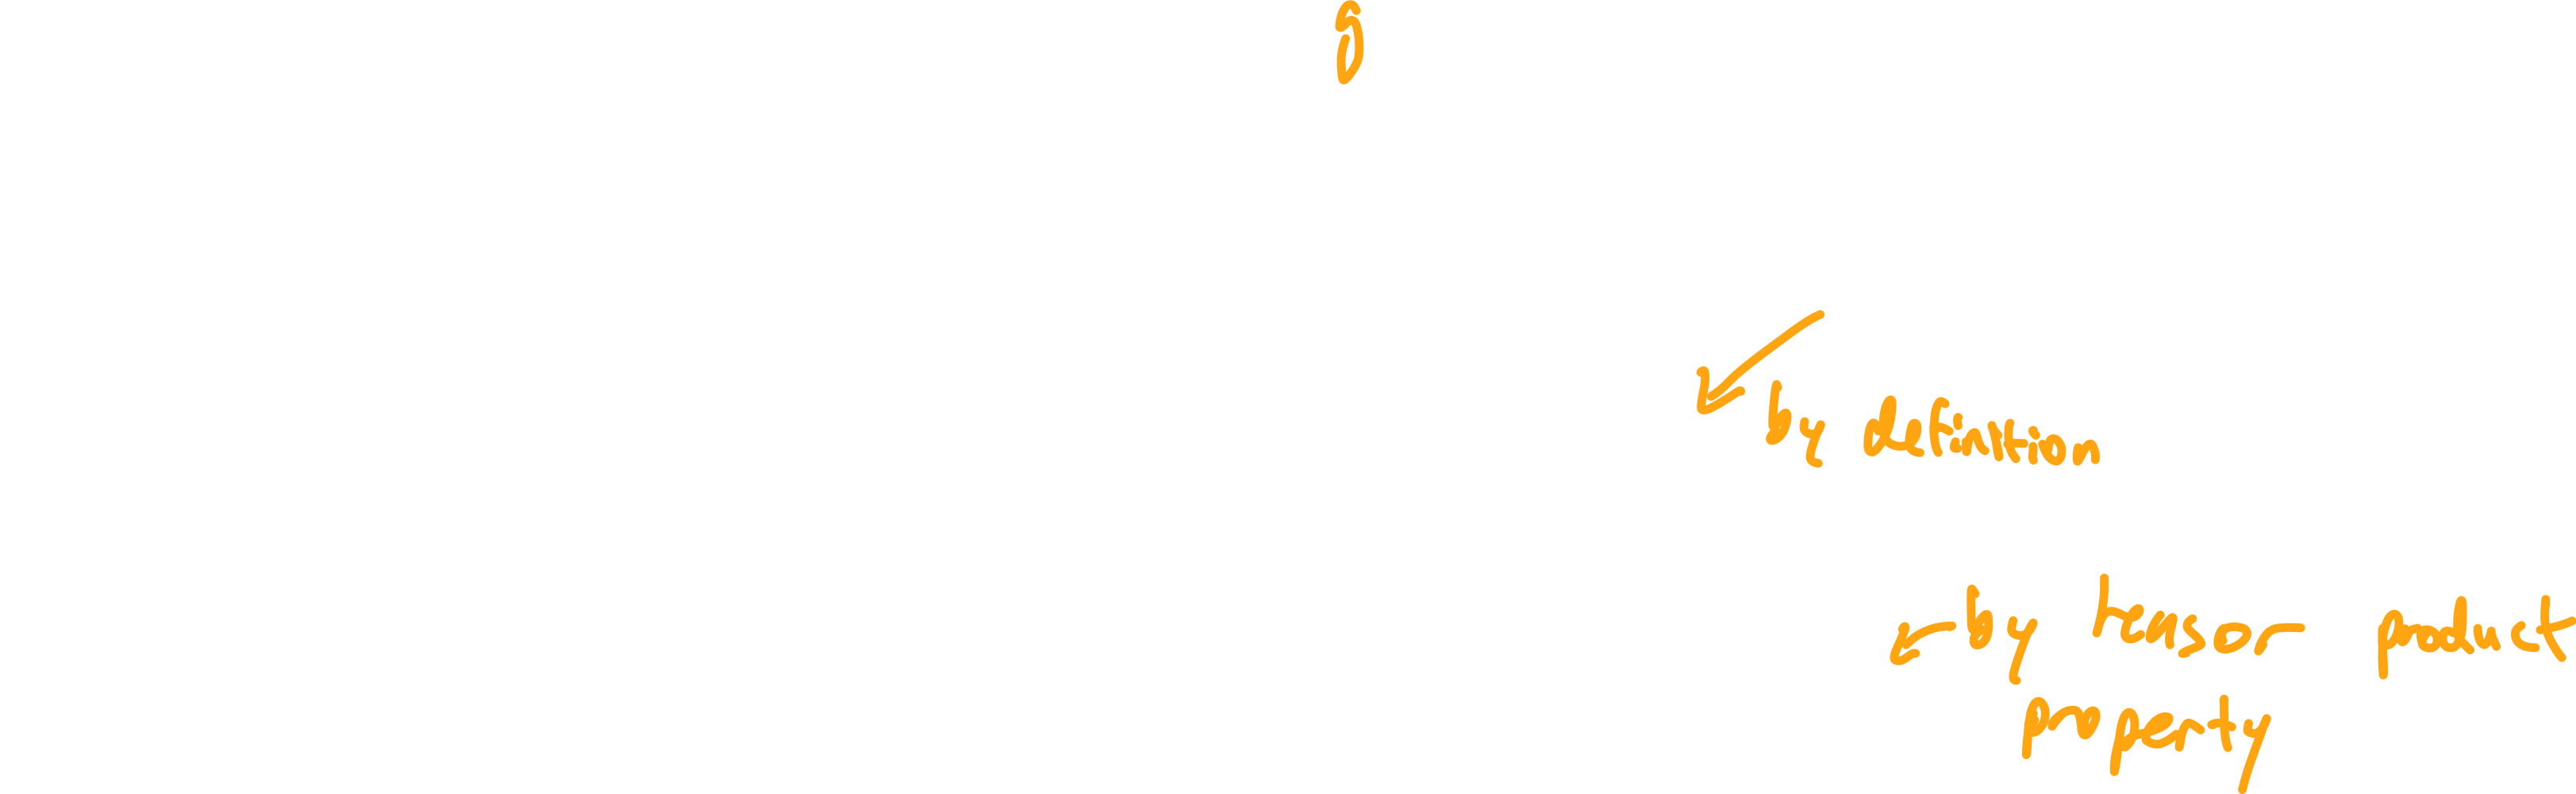 by definition
by tensor product
property